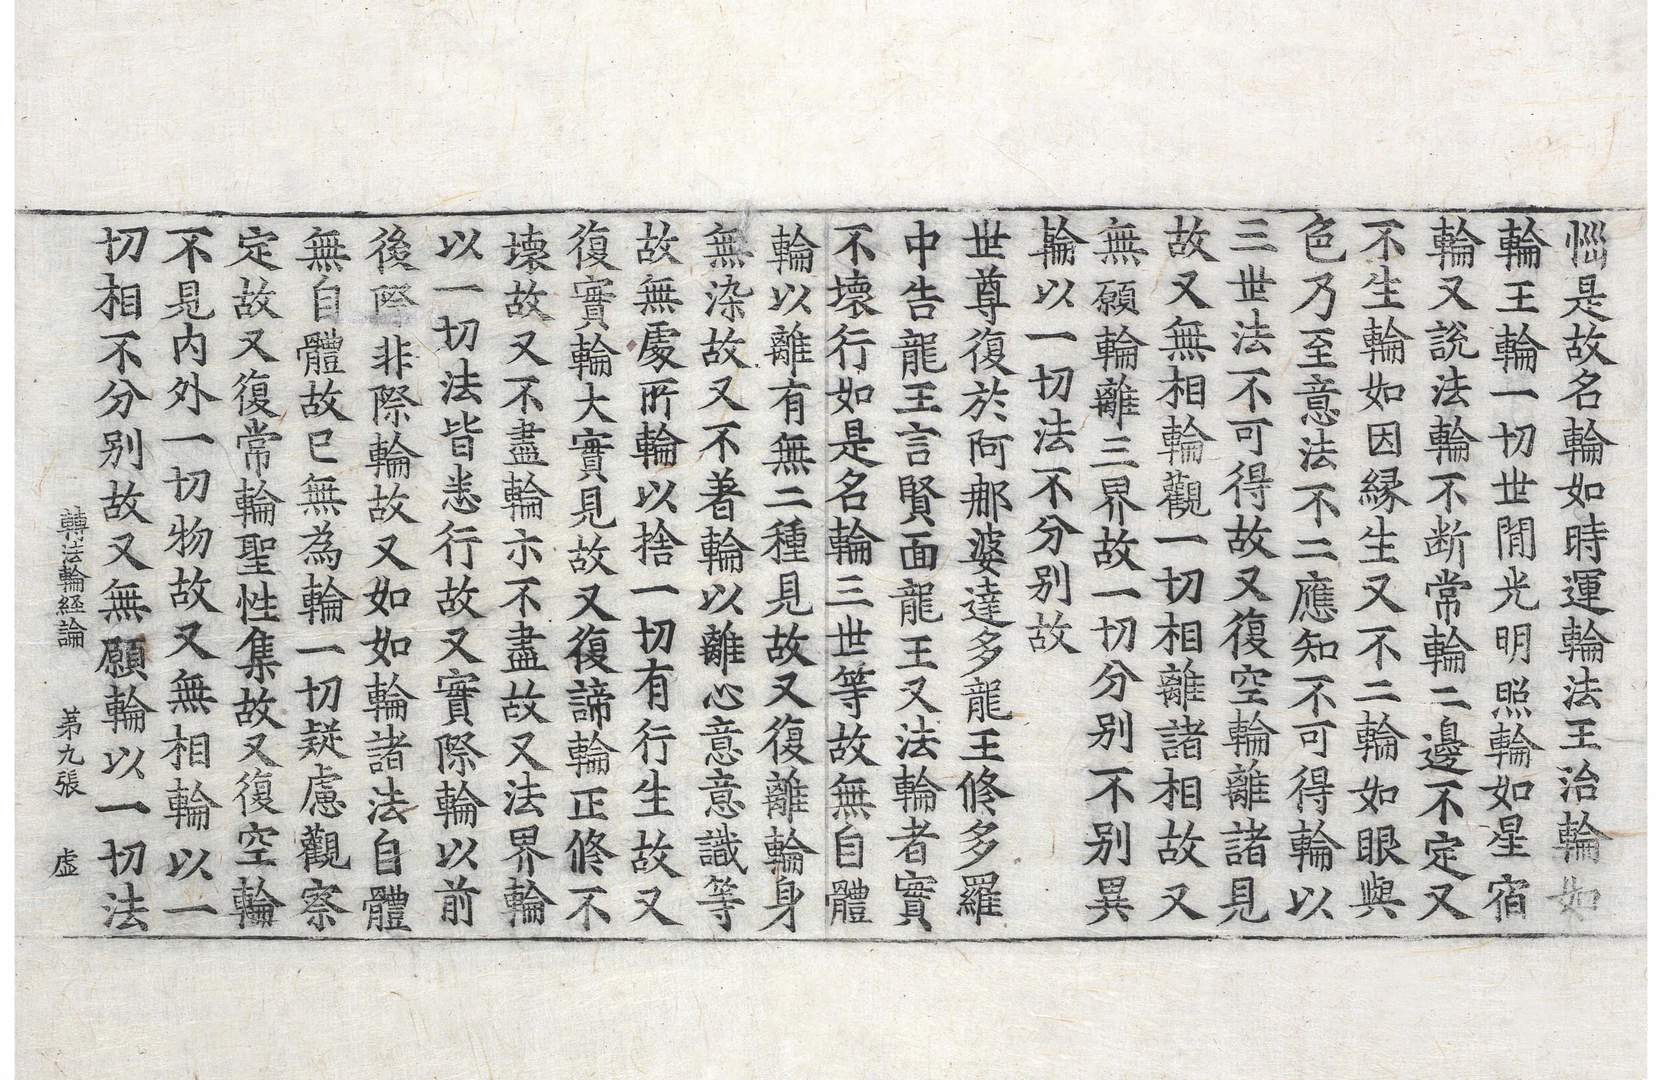 惱是故名輪如時運輪法王治輪如
輪王輪一切世閒光明照輪如星宿
輪又說法輪不断常輪二邊不定又
不生輪如因縁生又不二輪如眼與
色乃至意法不二應知不可得輪以
三世法不可得故又復空輪離諸見
故又無相輪觀一切相離諸相故又
無願輪離三界故一切分別不別異
輪以一切法不分別故
世尊復於阿那婆達多龍王修多羅
中告龍王言賢面龍王又法輪者實
不壞行如是名輪三世等故無自體
輪以離有無二種見故又復離輪身
無染故又不著輪以離心意意識等
故無處所輪以捨一切有行生故又
復實輪大實見故又復諦輪正修不
壞故又不盡輪亦不盡故又法界輪
以一切法皆悉行故又實際輪以前
後際非際輪故又如如輪諸法自體
無自體故已無為輪一切疑慮觀察
定故又復常輪聖性集故又復空輪
不見內外一切物故又無相輪以一
切相不分別故又無願輪以一切法
轉法輪經論 苐九張 虛